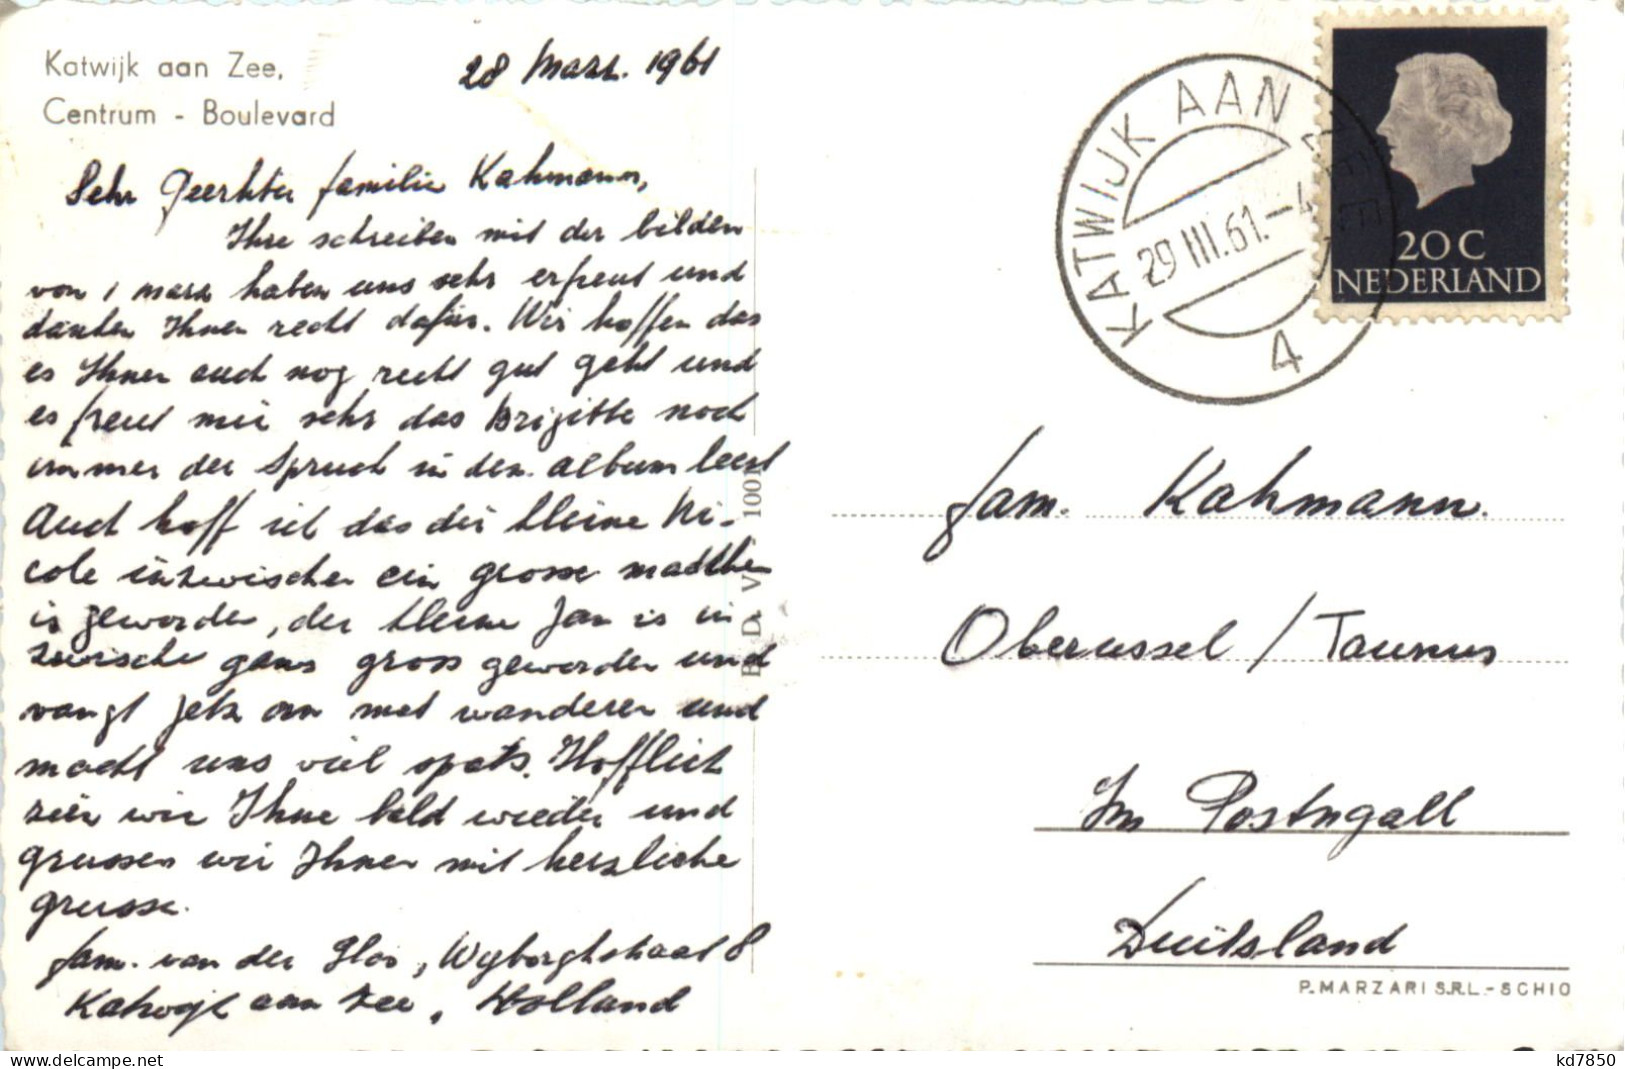 Katwijk aan Zee,
Centrum - Boulevard
28 Marz. 1961
Sehr Geerhter familie Kahmann,
Ihre schreiben mit der bilden
von 1 marz haben uns sehr erfreut und
danken Ihnen recht dafür. Wir hoffen das
es Ihnen auch nog recht gut geht und
es freut mir sehr das Brigitte noch
immer der Spruch in den album leest
Auch hoff ich das die kleine Ni-
cole inzwischen ein grosse madchen
is geworden, der kleine Jan is in
zwische gans gross geworden und
vangt jetz an met wanderen und
macht uns viel spats. Hofflich
zien wir Ihne bald wieder und
grussen wir Ihnen mit herzliche
grusse.
fam. van der , 8
Katwijk aan Zee, Holland
B. D. V 1001
KATWIJK AAN ZEE
29 III.61.-4
4
20 C
NEDERLAND
fam. Kahmann.
Oberussel / Taunus
Im Postngall
Duitsland
P. MARZARI S.R.L.-SCHIO
delcampe.net
kd7850